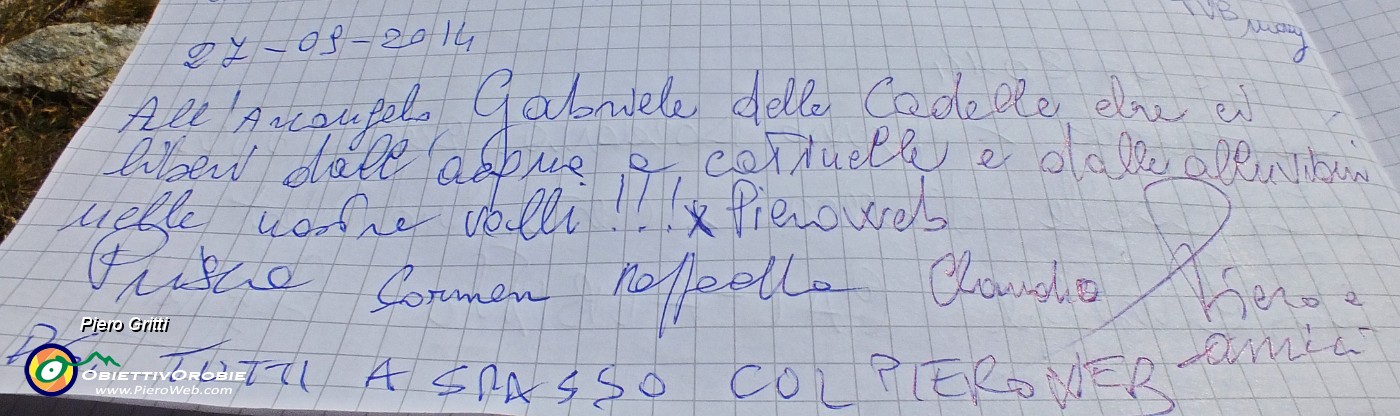 TVB
mary
27-09-2014
All'Arcangelo Gabriele delle Cadelle che ci
liberi dall'acqua e dalle alluvioni
nelle nostre valli!!! x Pieroweb
Carmen Raffaella Claudio Piero e
amici
TUTTI A SPASSO COL PIEROWEB
Piero Gritti
OBIETTIVOROBIE
www.PieroWeb.com